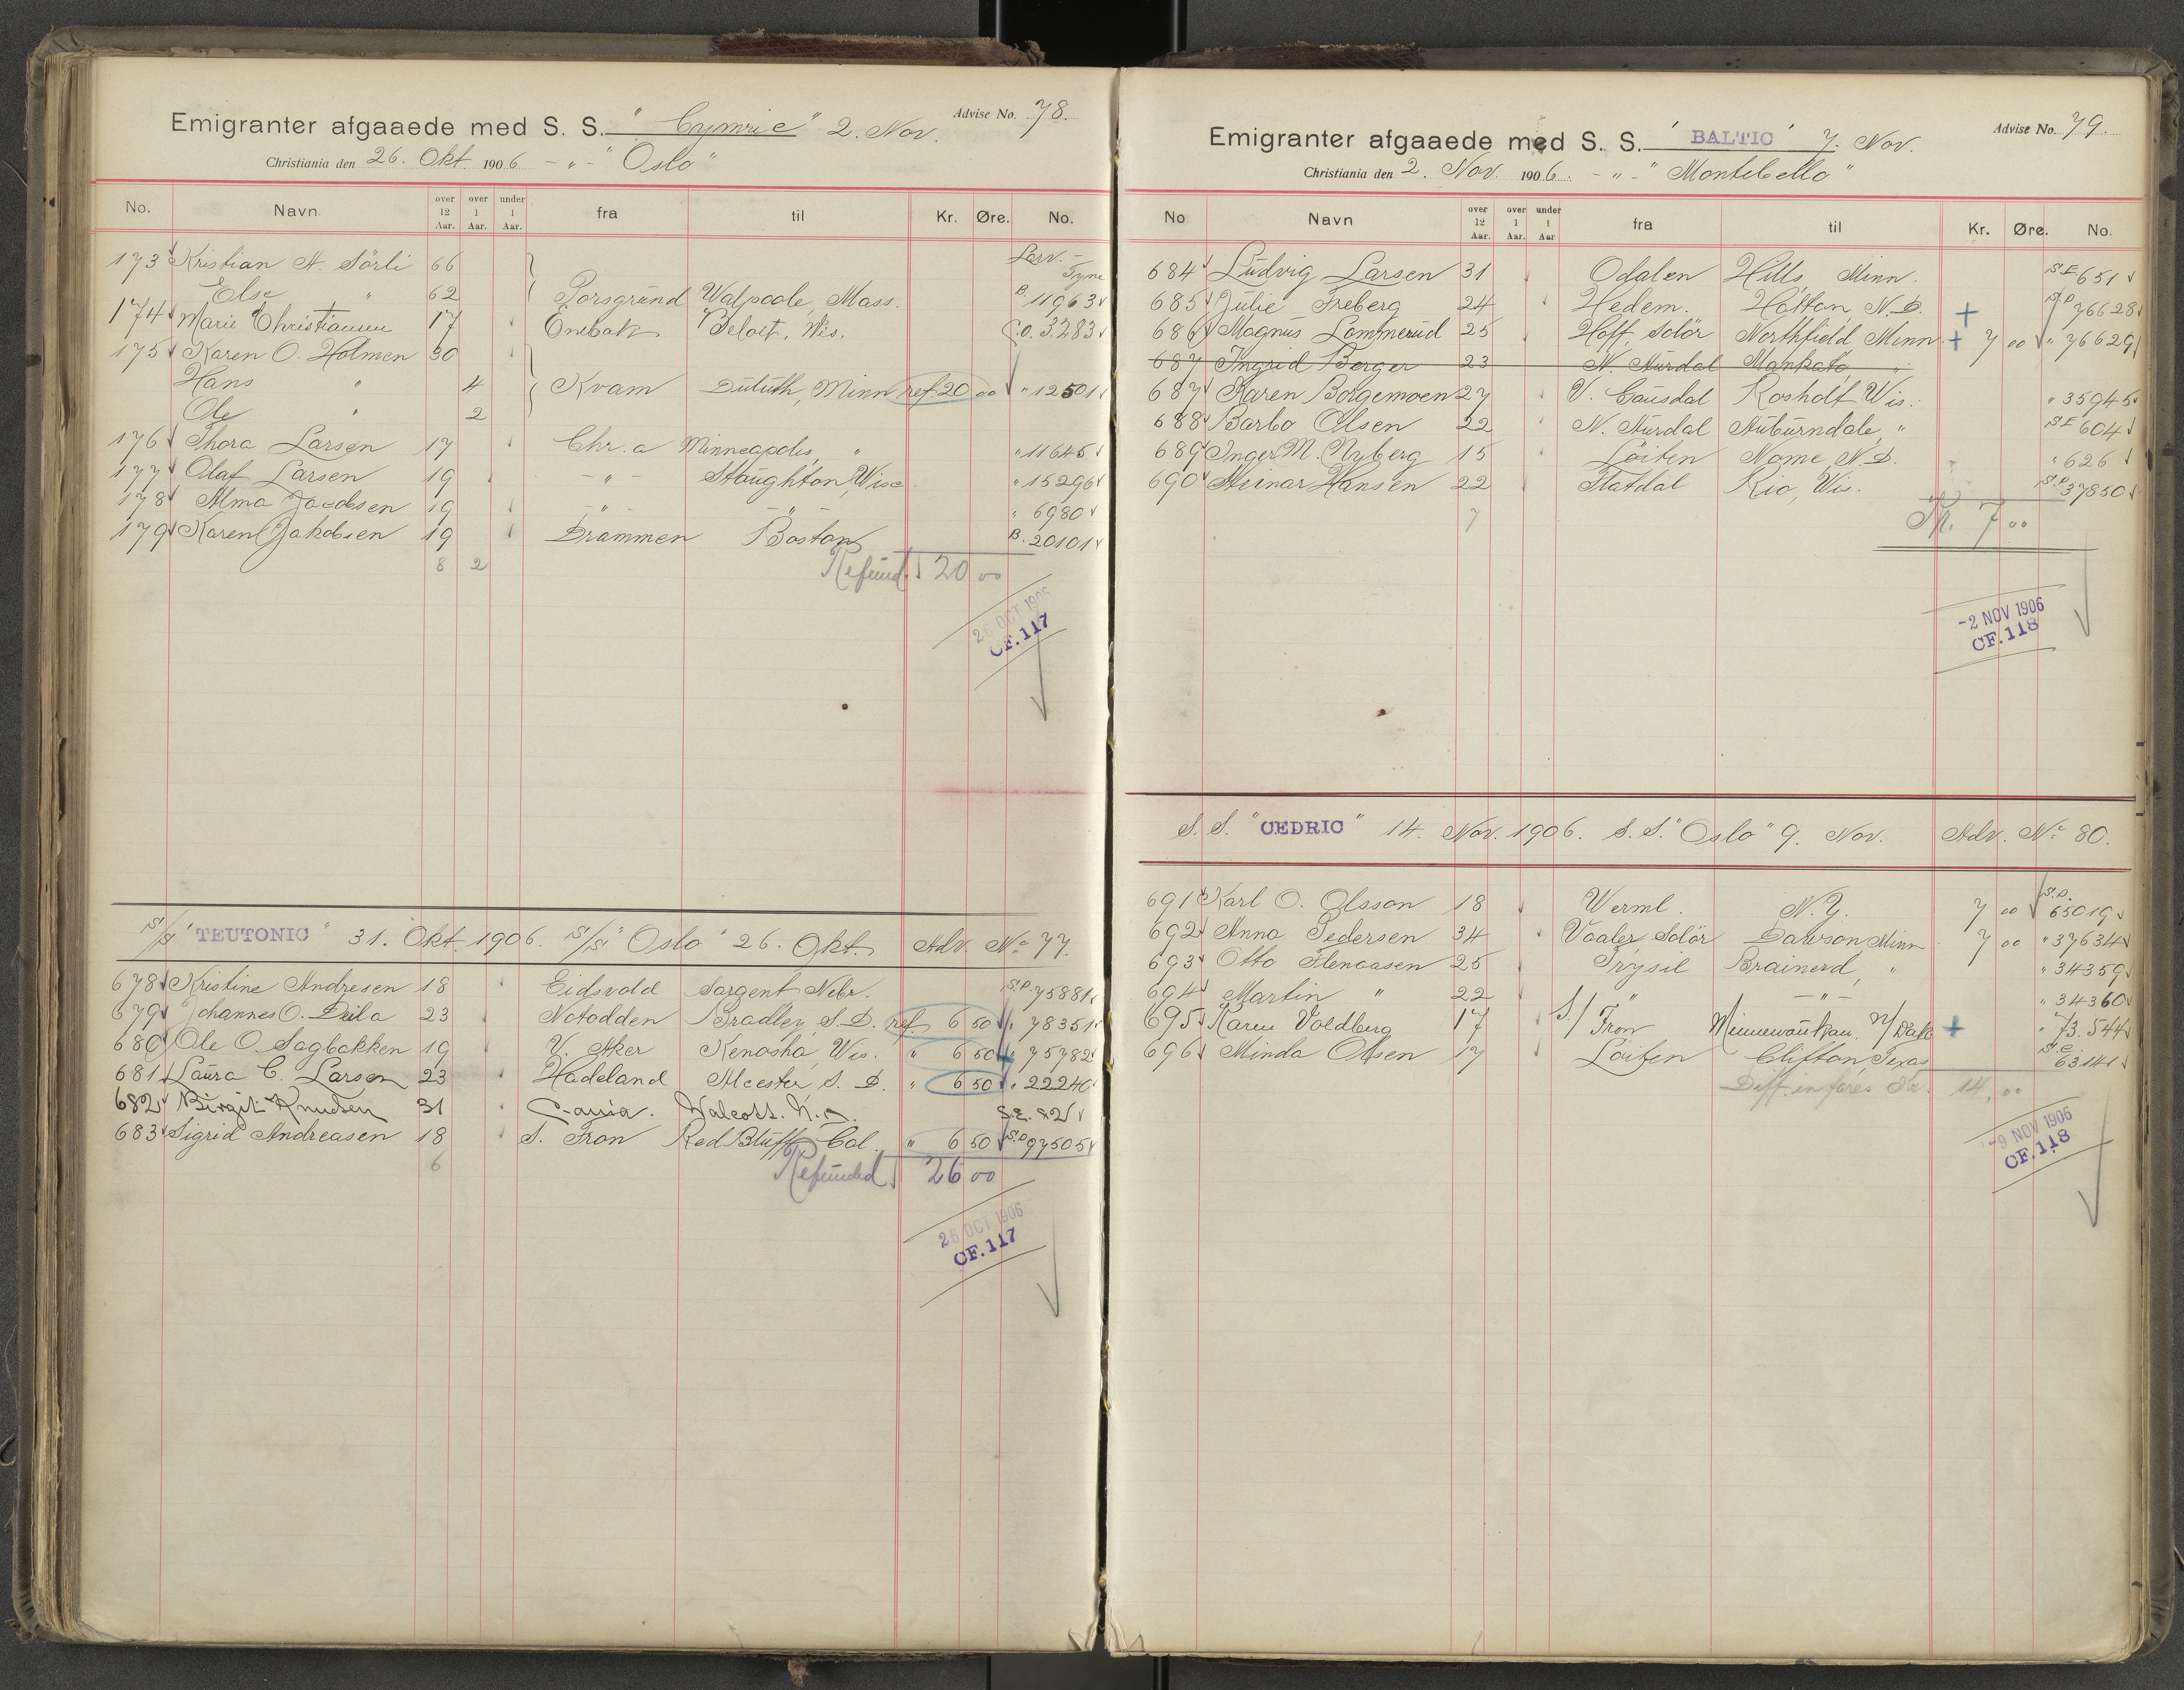 Emigranter afgaaede med S. S. "Cymric" 2. Nov. Advise No. 78.
Christiania den 26. Okt. 1906 - " - "Oslo"
No. Navn over 12 Aar. over 1 Aar. under 1 Aar. fra til Kr. Øre. No.
173 Kristian A. Sörli 66 Larv. - Tyne
Else " 62 Porsgrund Walpoole, Mass. B. 11963
174 Marie Christiansen 17 Enebak Beloit, Wis. C.O. 3283
175 Karen O. Holmen 30
Hans " 4 Kvam Duluth, Minn ref. 20 00 " 12501
Ole " 2
176 Thora Larsen 17 Chr.a Minneapolis, " " 11645
177 Olaf Larsen 19 - " - Stoughton, Wisc " 15296
178 Alma Jacobsen 19 - " - - " - " 6980
179 Karen Jakobsen 19 Drammen Boston B. 20101
8 2 Refund. 20 00
26 OCT 1906
CF. 117
S/S "TEUTONIC" 31. Okt. 1906. S/S "Oslo" 26. Okt. Adv. No 77.
678 Kristine Andresen 18 Eidsvold Sargent Nebr. S.P. 75881
679 Johannes O. Deila 23 Notodden Bradley, S.D. ref. 6 50 " 78351
680 Ole O. Sagbakken 19 V. Aker Kenosha, Wis. " 6 50 " 75782
681 Laura C. Larsen 23 Hadeland Alcester S. D. " 6 50 " 22240
682 Birgit Knudsen 31 Walcott. N.D. S.E. 
683 Sigrid Andreasen 18 S. Fron Red Bluff, Col. " 6 50 S.P. 97505
6 Refunded 26 00
26 OCT 1906
CF. 117
Emigranter afgaaede med S. S. "BALTIC" 7. Nov. Advise No. 79.
Christiania den 2. Nov. 1906. - " - "Montebello"
No Navn over 12 Aar. over 1 Aar. under 1 Aar fra til Kr. Øre. No.
684 Ludvig Larsen 31 Odalen Hills, Minn. S.E 651
685 Julie Freberg 24 Hedem. Hatton, N.D. + S.P 76628
686 Magnus Lommerud 25 Hoff, Solör Northfield Minn. + 7 00 " 76629
687 Ingrid Berger 23 N. Aurdal Mankato, "
687 Karen Borgemoen 27 V. Gausdal Rosholt Wis. " 35945
688 Barbo Olsen 22 N. Aurdal Auburndale, " S.E 604
689 Inger M. Nyberg 15 Löiten Nome, N.D. " 626
690 Heinar Hansen 22 Flatdal Rio, Wis. S.P. 37850
7 Kr. 7 00
-2 NOV 1906
CF. 118
S. S. "CEDRIC" 14. Nov. 1906. S. S. "Oslo" 9. Nov. Adv. No 80.
691 Karl O. Olsson 18 Werml. N.Y. 7 00 S.P. 65019
692 Anna Pedersen 34 Vaaler Solör Dawson, Minn 7 00 " 37634
693 Otto Stenaasen 25 Trysil Brainerd, " " 34359
694 Martin " 22 " - " - " 34360
695 Karen Voldberg 17 S./Fron Minnewaukan. N/Dak + " 73.544
696 Minda Olsen 17 Löiten Clifton, Texas S.E. 63141
Diff. in fares Kr. 14.00
-9 NOV 1906
CF. 118